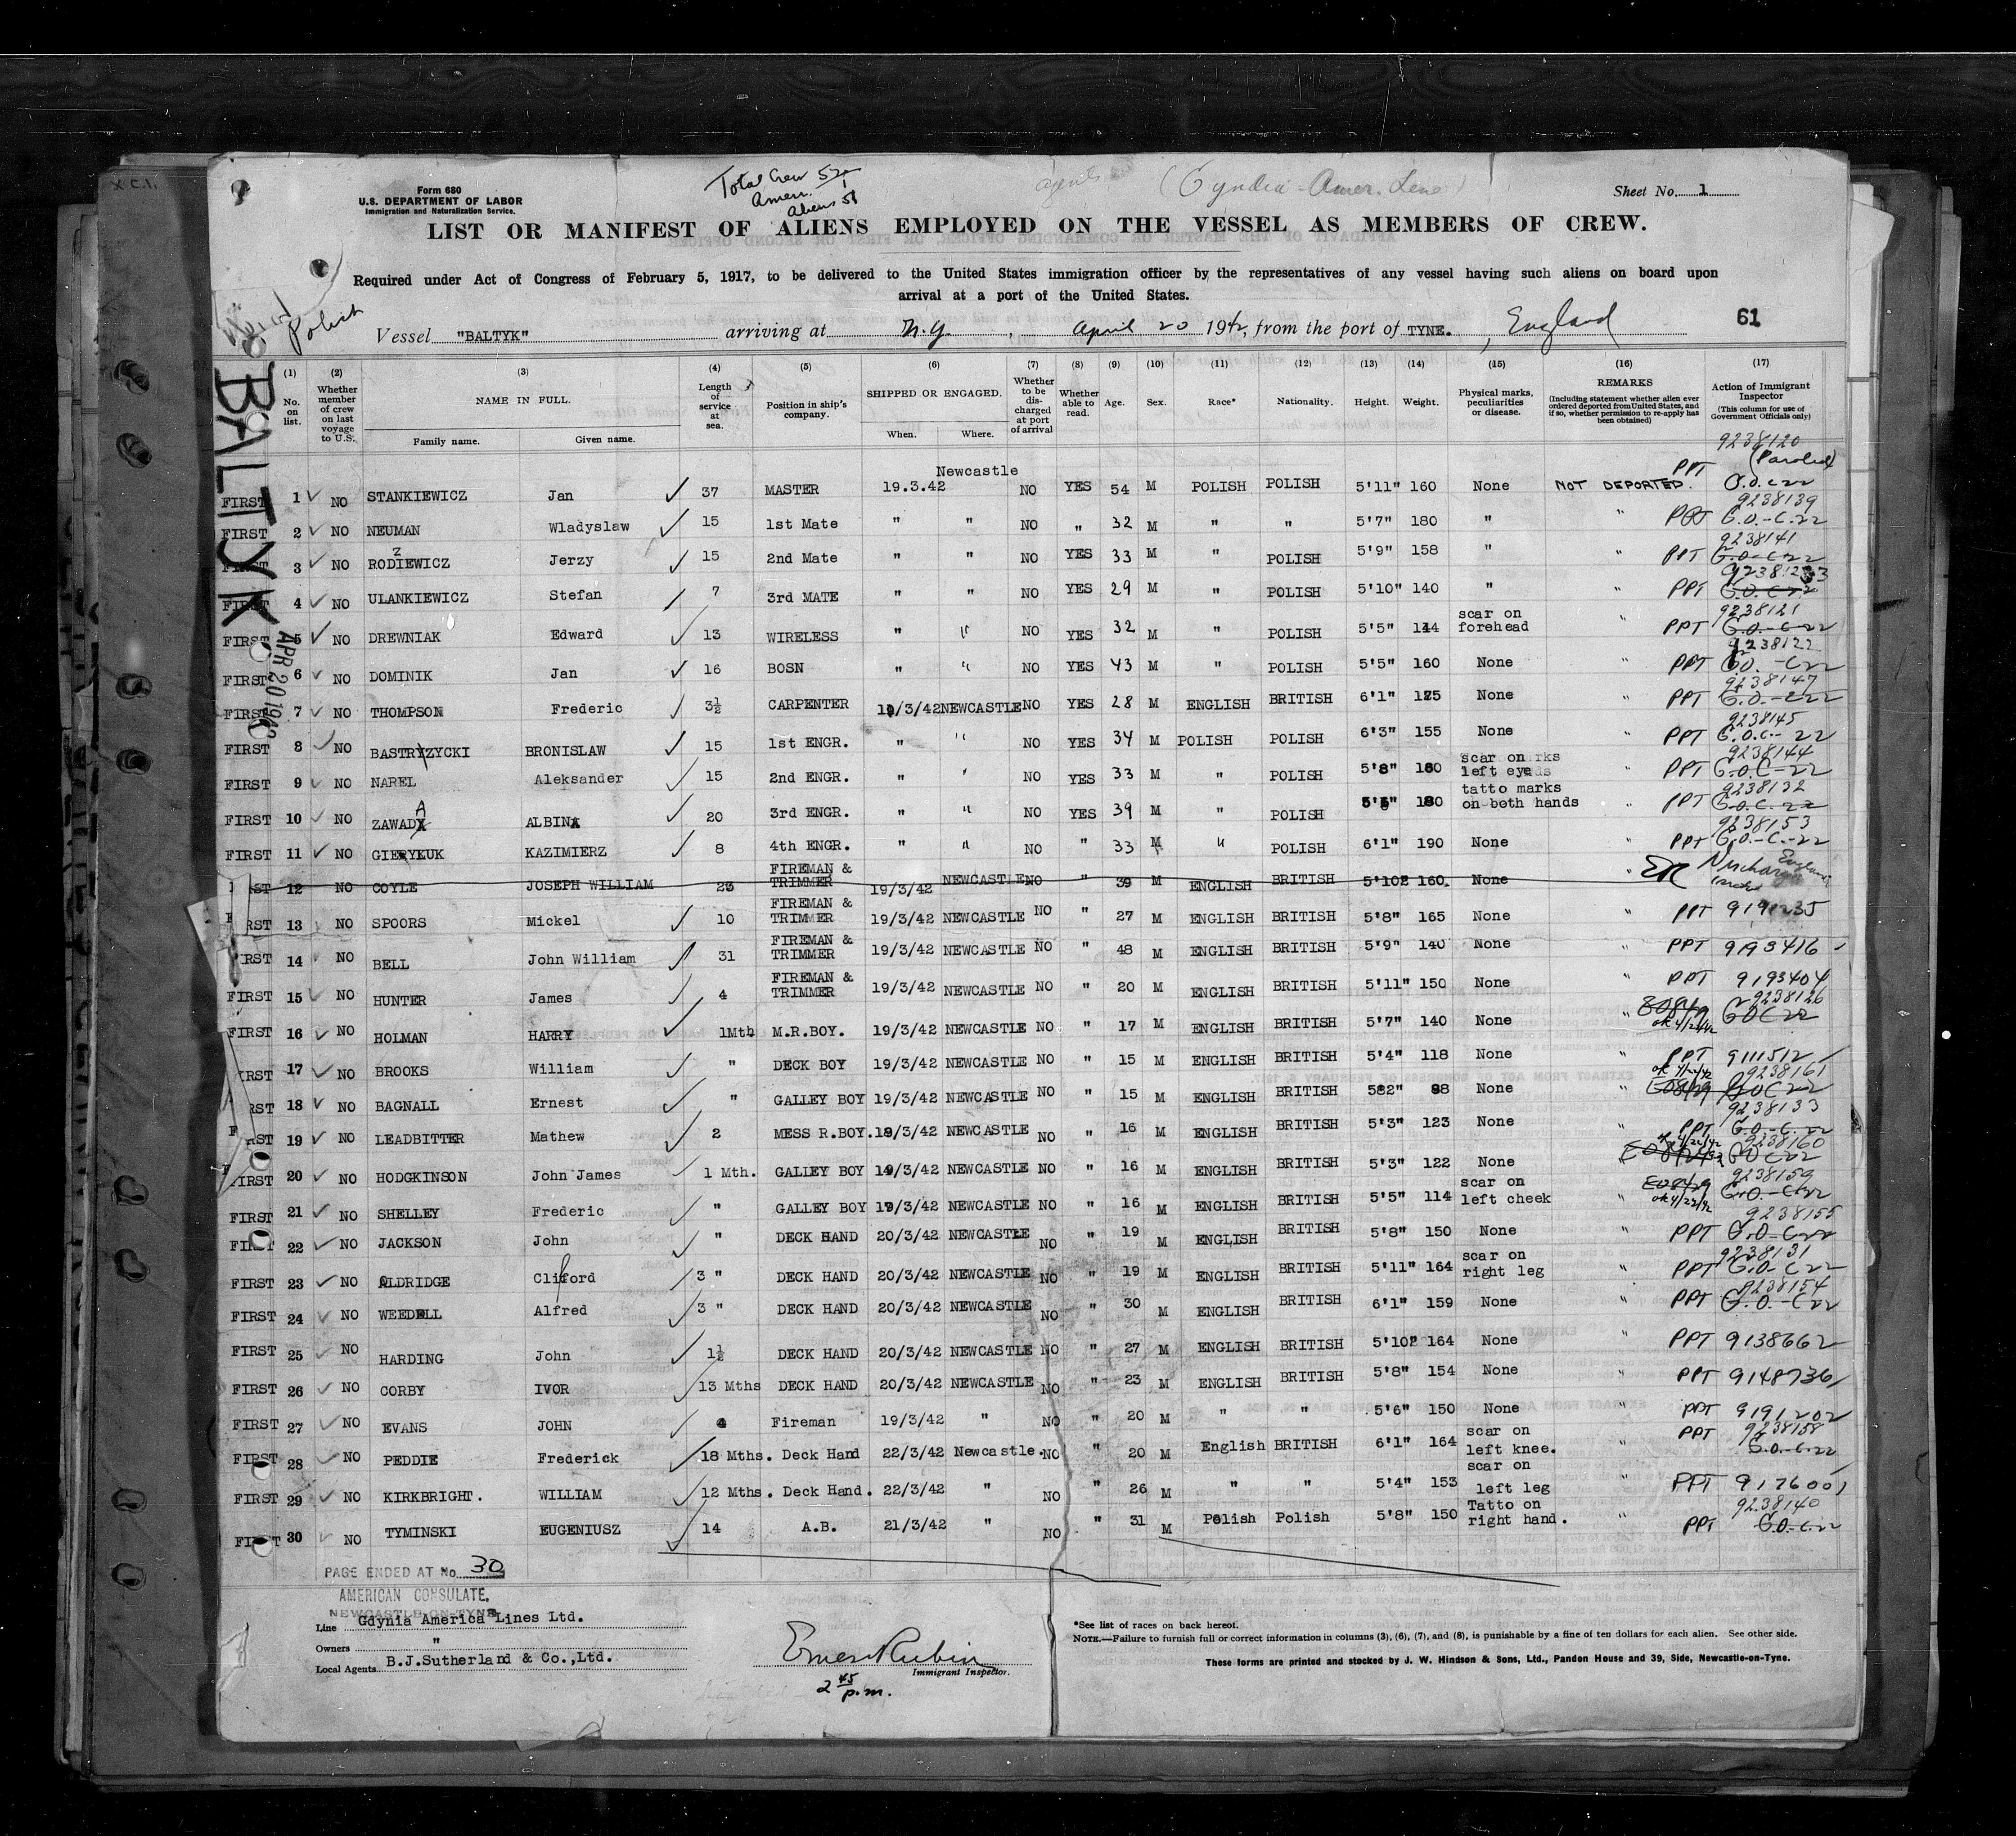 Form 680
U.S. DEPARTMENT OF LABOR
Immigration and Naturalization Service.
Total Crew 52
Amer. 1
Aliens 51
agents (Gyndia-Amer. Line)
Sheet No. 1
LIST OR MANIFEST OF ALIENS EMPLOYED ON THE VESSEL AS MEMBERS OF CREW.
Required under Act of Congress of February 5, 1917, to be delivered to the United States immigration officer by the representatives of any vessel having such aliens on board upon
arrival at a port of the United States.
Polish
Vessel "BALTYK" arriving at N.Y., April 20 1942, from the port of TYNE, England
61
BALTYK
APR 20 1942
(1) No. on list.
(2) Whether member of crew on last voyage to U.S.
(3) NAME IN FULL. Family name. Given name.
(4) Length of service at sea.
(5) Position in ship's company.
(6) SHIPPED OR ENGAGED. When. Where.
(7) Whether to be discharged at port of arrival
(8) Whether able to read.
(9) Age.
(10) Sex.
(11) Race*
(12) Nationality.
(13) Height.
(14) Weight.
(15) Physical marks, peculiarities or disease.
(16) REMARKS (Including statement whether alien ever ordered deported from United States, and if so, whether permission to re-apply has been obtained)
(17) Action of Immigrant Inspector (This column for use of Government Officials only)
FIRST 1 NO STANKIEWICZ Jan 37 MASTER 19.3.42 Newcastle NO YES 54 M POLISH POLISH 5'11" 160 None NOT DEPORTED. PPT 9238120 (Paroled)
FIRST 2 NO NEUMAN Wladyslaw 15 1st Mate " " NO " 32 M " " 5'7" 180 " " PPT 9238139 G.O.-C-22
FIRST 3 NO RODZIEWICZ Jerzy 15 2nd Mate " " NO YES 33 M " POLISH 5'9" 158 " " PPT 9238141 G.O-C-22
FIRST 4 NO ULANKIEWICZ Stefan 7 3rd MATE " " NO YES 29 M " POLISH 5'10" 140 " " PPT G.O.C-22
FIRST 5 NO DREWNIAK Edward 13 WIRELESS " " NO YES 32 M " POLISH 5'5" 144 scar on forehead " PPT 9238121 G.O.-C-22
FIRST 6 NO DOMINIK Jan 16 BOSN " " NO YES 43 M " POLISH 5'5" 160 None " PPT 9238122 G.O.-C22
FIRST 7 NO THOMPSON Frederic 3½ CARPENTER 19/3/42 NEWCASTLE NO YES 28 M ENGLISH BRITISH 6'1" 175 None " PPT 9238147 G.O.-C22
FIRST 8 NO BASTRZYCKI BRONISLAW 15 1st ENGR. " " NO YES 34 M POLISH POLISH 6'3" 155 None " PPT 9238145 G.O.C.-22
FIRST 9 NO NAREL Aleksander 15 2nd ENGR. " " NO YES 33 M " POLISH 5'8" 160 scar on left eye " PPT 9238144 G.O.C-22
FIRST 10 NO ZAWADA ALBIN 20 3rd ENGR. " " NO YES 39 M " POLISH 180 tatto marks on both hands " PPT 9238132 G.O.C.22
FIRST 11 NO KAZIMIERZ 8 4th ENGR. " " NO " 33 M " POLISH 6'1" 190 None " PPT 9238153 G.O.-C.-22
12 NO COYLE JOSEPH WILLIAM 23 FIREMAN & TRIMMER 19/3/42 NEWCASTLE NO " 39 M ENGLISH BRITISH 5'10½ 160. None
13 NO SPOORS Mickel 10 FIREMAN & TRIMMER 19/3/42 NEWCASTLE NO " 27 M ENGLISH BRITISH 5'8" 165 None " PPT
FIRST 14 NO BELL John William 31 FIREMAN & TRIMMER 19/3/42 NEWCASTLE NO " 48 M ENGLISH BRITISH 5'9" 140 None " PPT 9193416
FIRST 15 NO HUNTER James 4 FIREMAN & TRIMMER 19/3/42 NEWCASTLE NO " 20 M ENGLISH BRITISH 5'11" 150 None " PPT 9193404
FIRST 16 NO HOLMAN HARRY 1Mth M.R.BOY. 19/3/42 NEWCASTLE NO " 17 M ENGLISH BRITISH 5'7" 140 None " ok 4/22/42 9238126 GOC22
FIRST 17 NO BROOKS William " DECK BOY 19/3/42 NEWCASTLE NO " 15 M ENGLISH BRITISH 5'4" 118 None " PPT 9111512
FIRST 18 NO BAGNALL Ernest " GALLEY BOY 19/3/42 NEWCASTLE NO " 15 M ENGLISH BRITISH 5'2" 88 None " ok 4/22/42 9238161 GOC22
FIRST 19 NO LEADBITTER Mathew 2 MESS R.BOY. 19/3/42 NEWCASTLE NO " 16 M ENGLISH BRITISH 5'3" 123 None " PPT 9238133 G.O.-C.22
FIRST 20 NO HODGKINSON John James 1 Mth. GALLEY BOY 19/3/42 NEWCASTLE NO " 16 M ENGLISH BRITISH 5'3" 122 None " ok 4/22/42 9238160 GOC22
FIRST 21 NO SHELLEY Frederic " GALLEY BOY 19/3/42 NEWCASTLE NO " 16 M ENGLISH BRITISH 5'5" 114 scar on left cheek " ok 4/22/42 9238159 G.O.-C.22
FIRST 22 NO JACKSON John " DECK HAND 20/3/42 NEWCASTLE NO " 19 M ENGLISH BRITISH 5'8" 150 None " PPT 9238155 G.O-C-22
FIRST 23 NO ALDRIDGE Clifford 3 " DECK HAND 20/3/42 NEWCASTLE NO " 19 M ENGLISH BRITISH 5'11" 164 scar on right leg " PPT 9238131 G.O-C22
FIRST 24 NO WEEDELL Alfred 3 " DECK HAND 20/3/42 NEWCASTLE NO " 30 M ENGLISH BRITISH 6'1" 159 None " PPT 9238154 G.O.-C22
FIRST 25 NO HARDING John 1½ DECK HAND 20/3/42 NEWCASTLE NO " 27 M ENGLISH BRITISH 5'10½ 164 None " PPT 9138662
FIRST 26 NO CORBY IVOR 13 Mths DECK HAND 20/3/42 NEWCASTLE NO " 23 M ENGLISH BRITISH 5'8" 154 None " PPT 9148736
FIRST 27 NO EVANS JOHN 4 Fireman 19/3/42 " NO " 20 M " " 5'6" 150 None " PPT 9191202
FIRST 28 NO PEDDIE Frederick 18 Mths. Deck Hand 22/3/42 Newcastle. NO " 20 M English BRITISH 6'1" 164 scar on left knee. " PPT 9238158 G.O.-C.22
FIRST 29 NO KIRKBRIGHT. WILLIAM 12 Mths. Deck Hand. 22/3/42 " NO " 26 M " " 5'4" 153 scar on left leg " PPT 9176001
FIRST 30 NO TYMINSKI EUGENIUSZ 14 A.B. 21/3/42 " NO " 31 M Polish Polish 5'8" 150 Tatto on right hand. " PPT 9238140 G.O.-C.22
PAGE ENDED AT No. 30
AMERICAN CONSULATE,
NEWCASTLE-ON-TYNE
Line Gdynia America Lines Ltd.
Owners "
Local Agents B.J.Sutherland & Co.,Ltd.
Ernest Rubin
Immigrant Inspector.
2 45 p.m.
*See list of races on back hereof.
NOTE.—Failure to furnish full or correct information in columns (3), (6), (7), and (8), is punishable by a fine of ten dollars for each alien. See other side.
These forms are printed and stocked by J. W. Hindson & Sons, Ltd., Pandon House and 39, Side, Newcastle-on-Tyne.